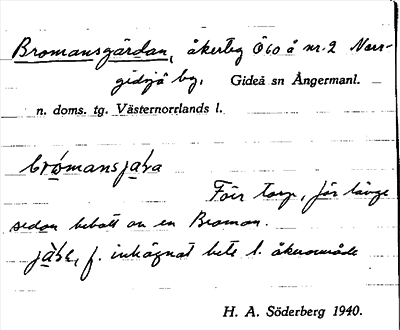 Bromansgärdan, åkerteg Ö 60 å nr. 2 Norr-
gidjå by, Gideå sn Ångermanl.
n. doms. tg. Västernorrlands l.
brómansjàṣa
Förr torp, för länge
sedan bebott av en Broman.
f. inhägnat bete l. åkerområde
H. A. Söderberg 1940.